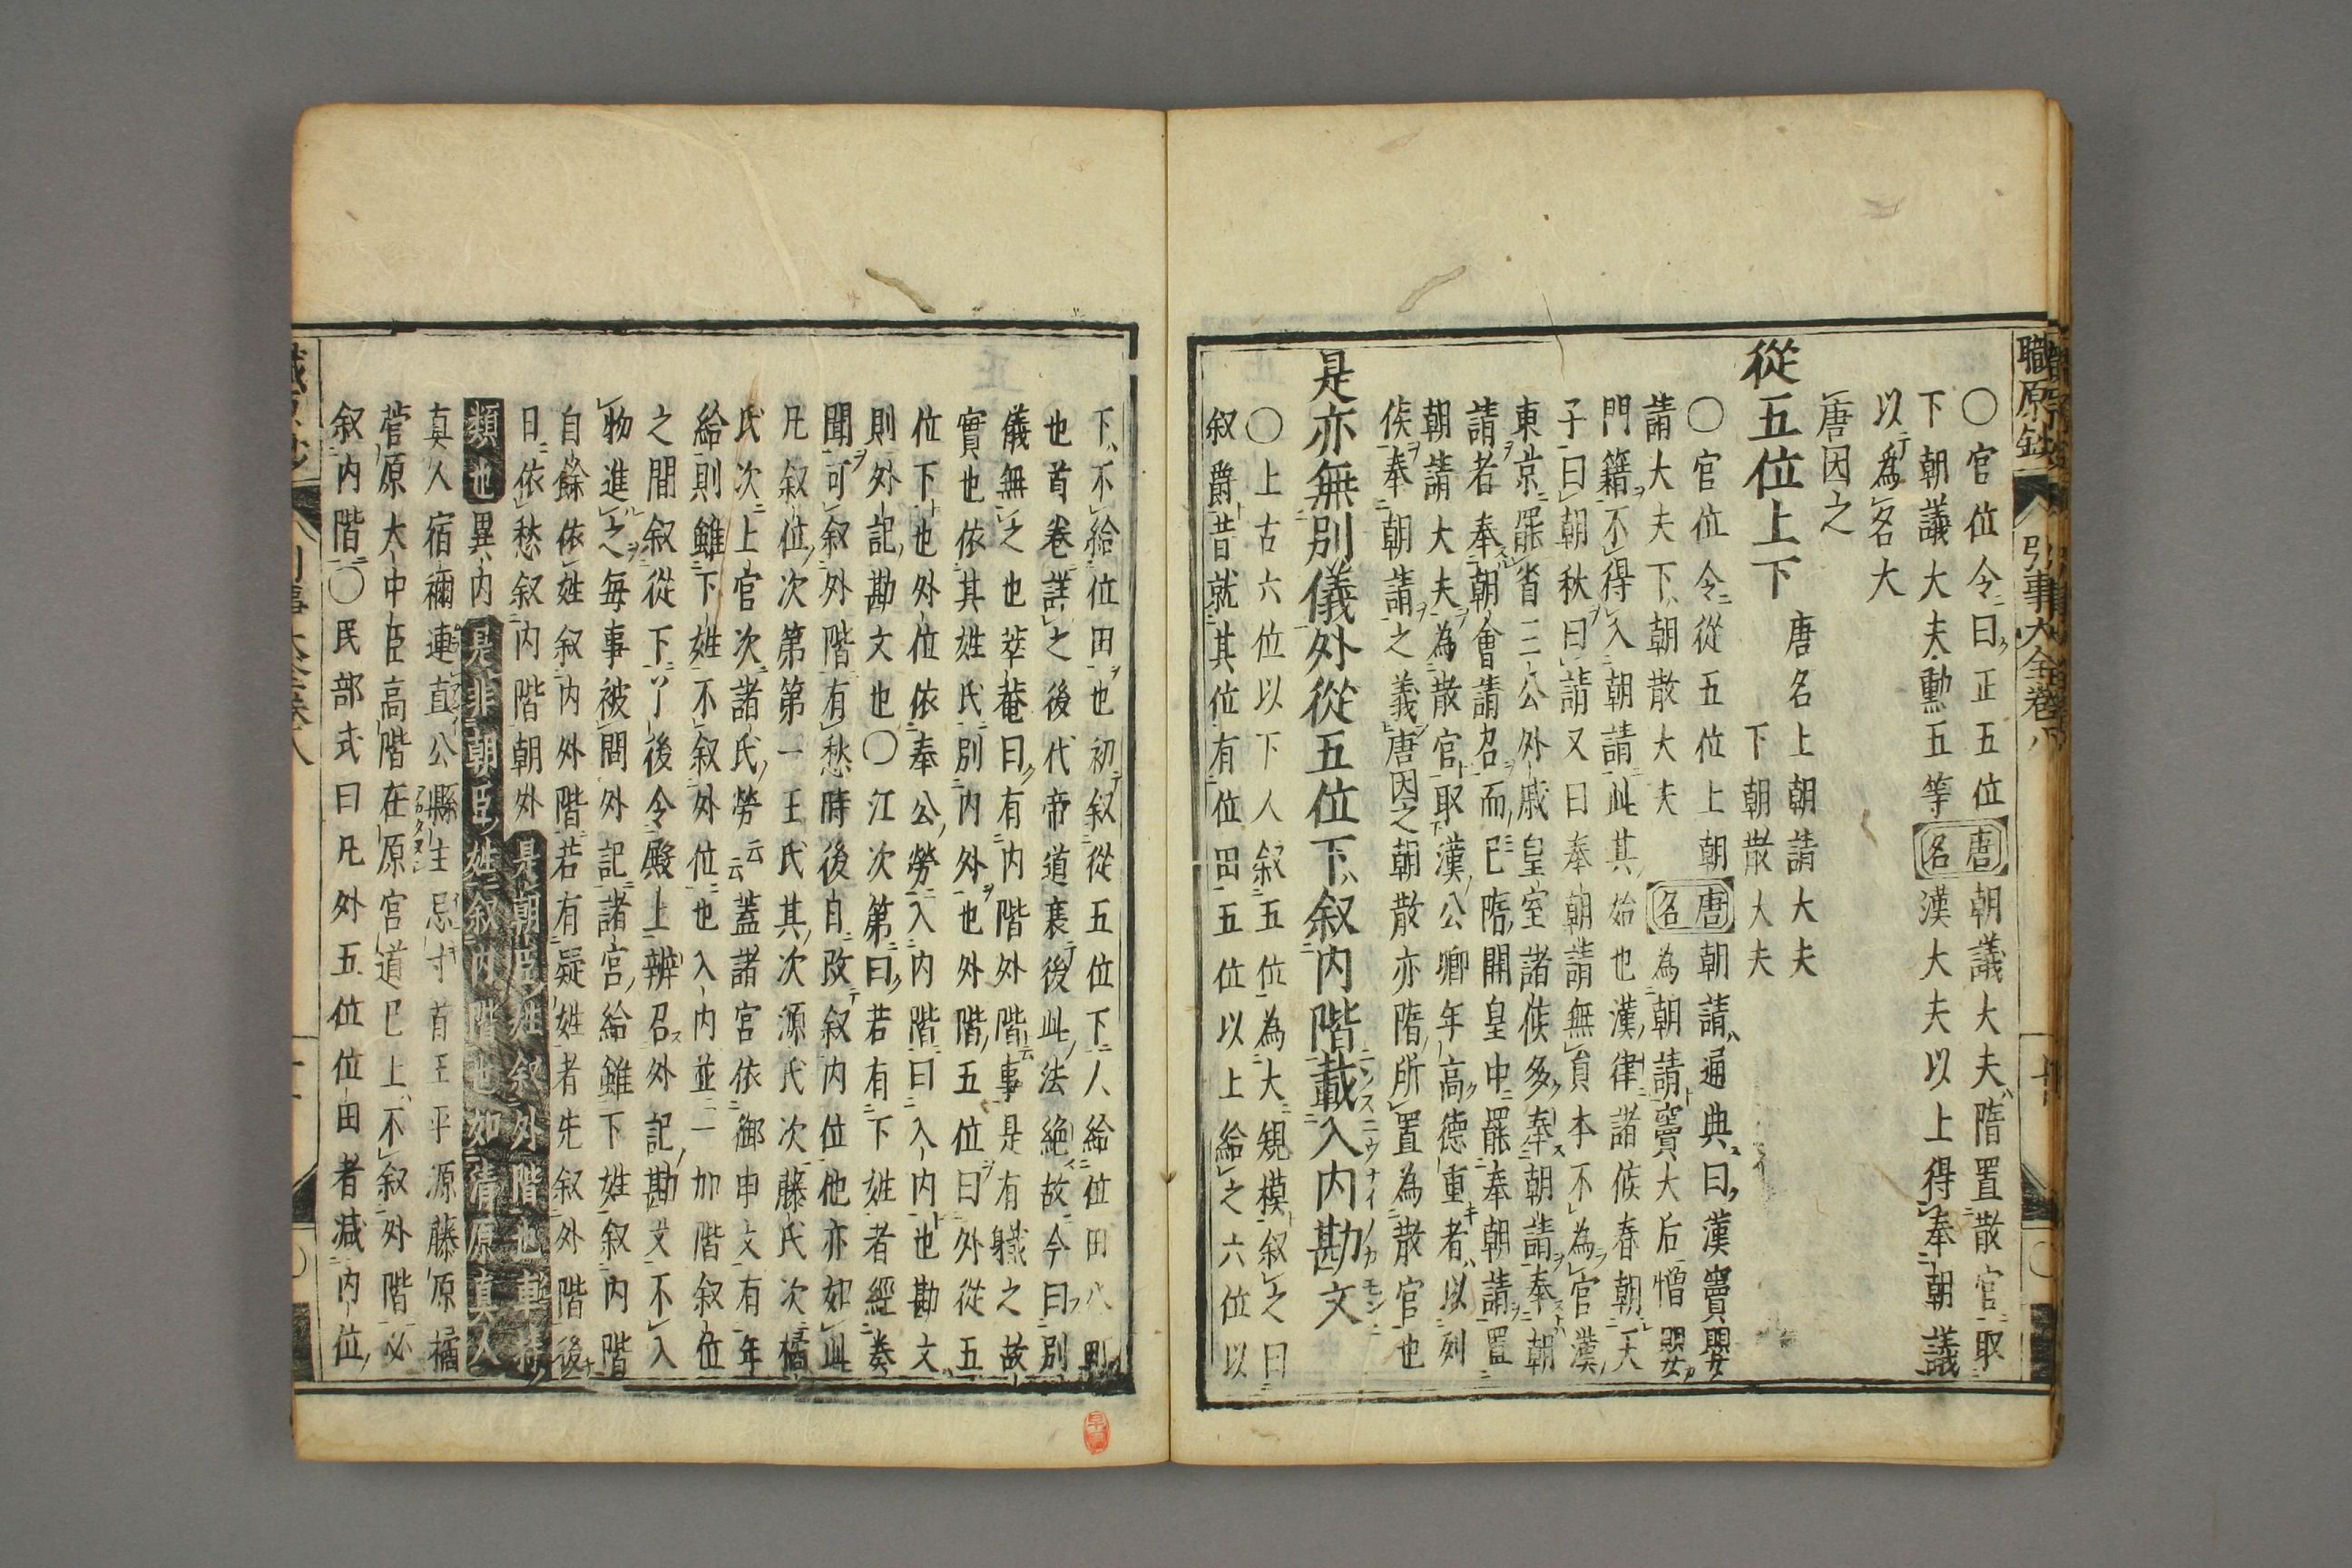 職原鈔 引事大全卷八
○官位令曰正五位唐名朝議大夫隋置散官取
下朝議大夫勳五等漢大夫以上得奉朝議
以為名大
唐因之
從五位上下 唐名上朝請大夫
下朝散大夫
○官位令從五位上朝唐名朝請通典曰漢竇嬰
請大夫下朝散大夫為朝請竇大后憎嬰
門籍不得入朝請此其始也漢律諸侯春朝天
子曰朝秋曰請又曰奉朝請無員本不為官漢
東京罷省三公外戚皇室諸侯多奉朝請奉朝
請者奉朝會請召而已隋開皇中罷奉朝請置
朝請大夫為散官取漢公卿年高德重者以列
侯奉朝請之義唐因之朝散亦隋所置為散官也
是亦無別儀外從五位下叙内階載入内勘文
○上古六位以下人叙五位為大規模叙之曰
叙爵昔就其位有位田五位以上給之六位以
下不給位田也初叙從五位下人給位田八町
也首卷詳之後代帝道衰後此法絶故今曰別
儀無之也萃菴曰有内階外階事是有職之故
實也依其姓氏別内外也外階五位曰外從五
位下也外位依奉公勞入内階曰入内也勘文
則外記勘文也○江次第曰若有下姓者經奏
聞可叙外階有愁時後自改叙内位他亦如此
凡叙位次第第一王氏其次源氏次藤氏次橘
氏次上官次諸氏勞云云蓋諸官依御申文有年
給則雖下姓不叙外位也入内並二一加階叙位
之間叙從下丫後令殿上辨召外記勘文不入
物進之每事被間外記諸宮給雖下姓叙内階
自餘依姓叙内外階若有疑姓者先叙外階後
日依愁叙内階朝外是朝臣姓叙外階也車持
類也異内是非朝臣姓叙内階也如清原真人
真人宿禰連直公縣主忌寸首王平源藤原橘
菅原大中臣高階在原宮道巳上不叙外階必
叙内階○民部式曰凡外五位位田者減内位